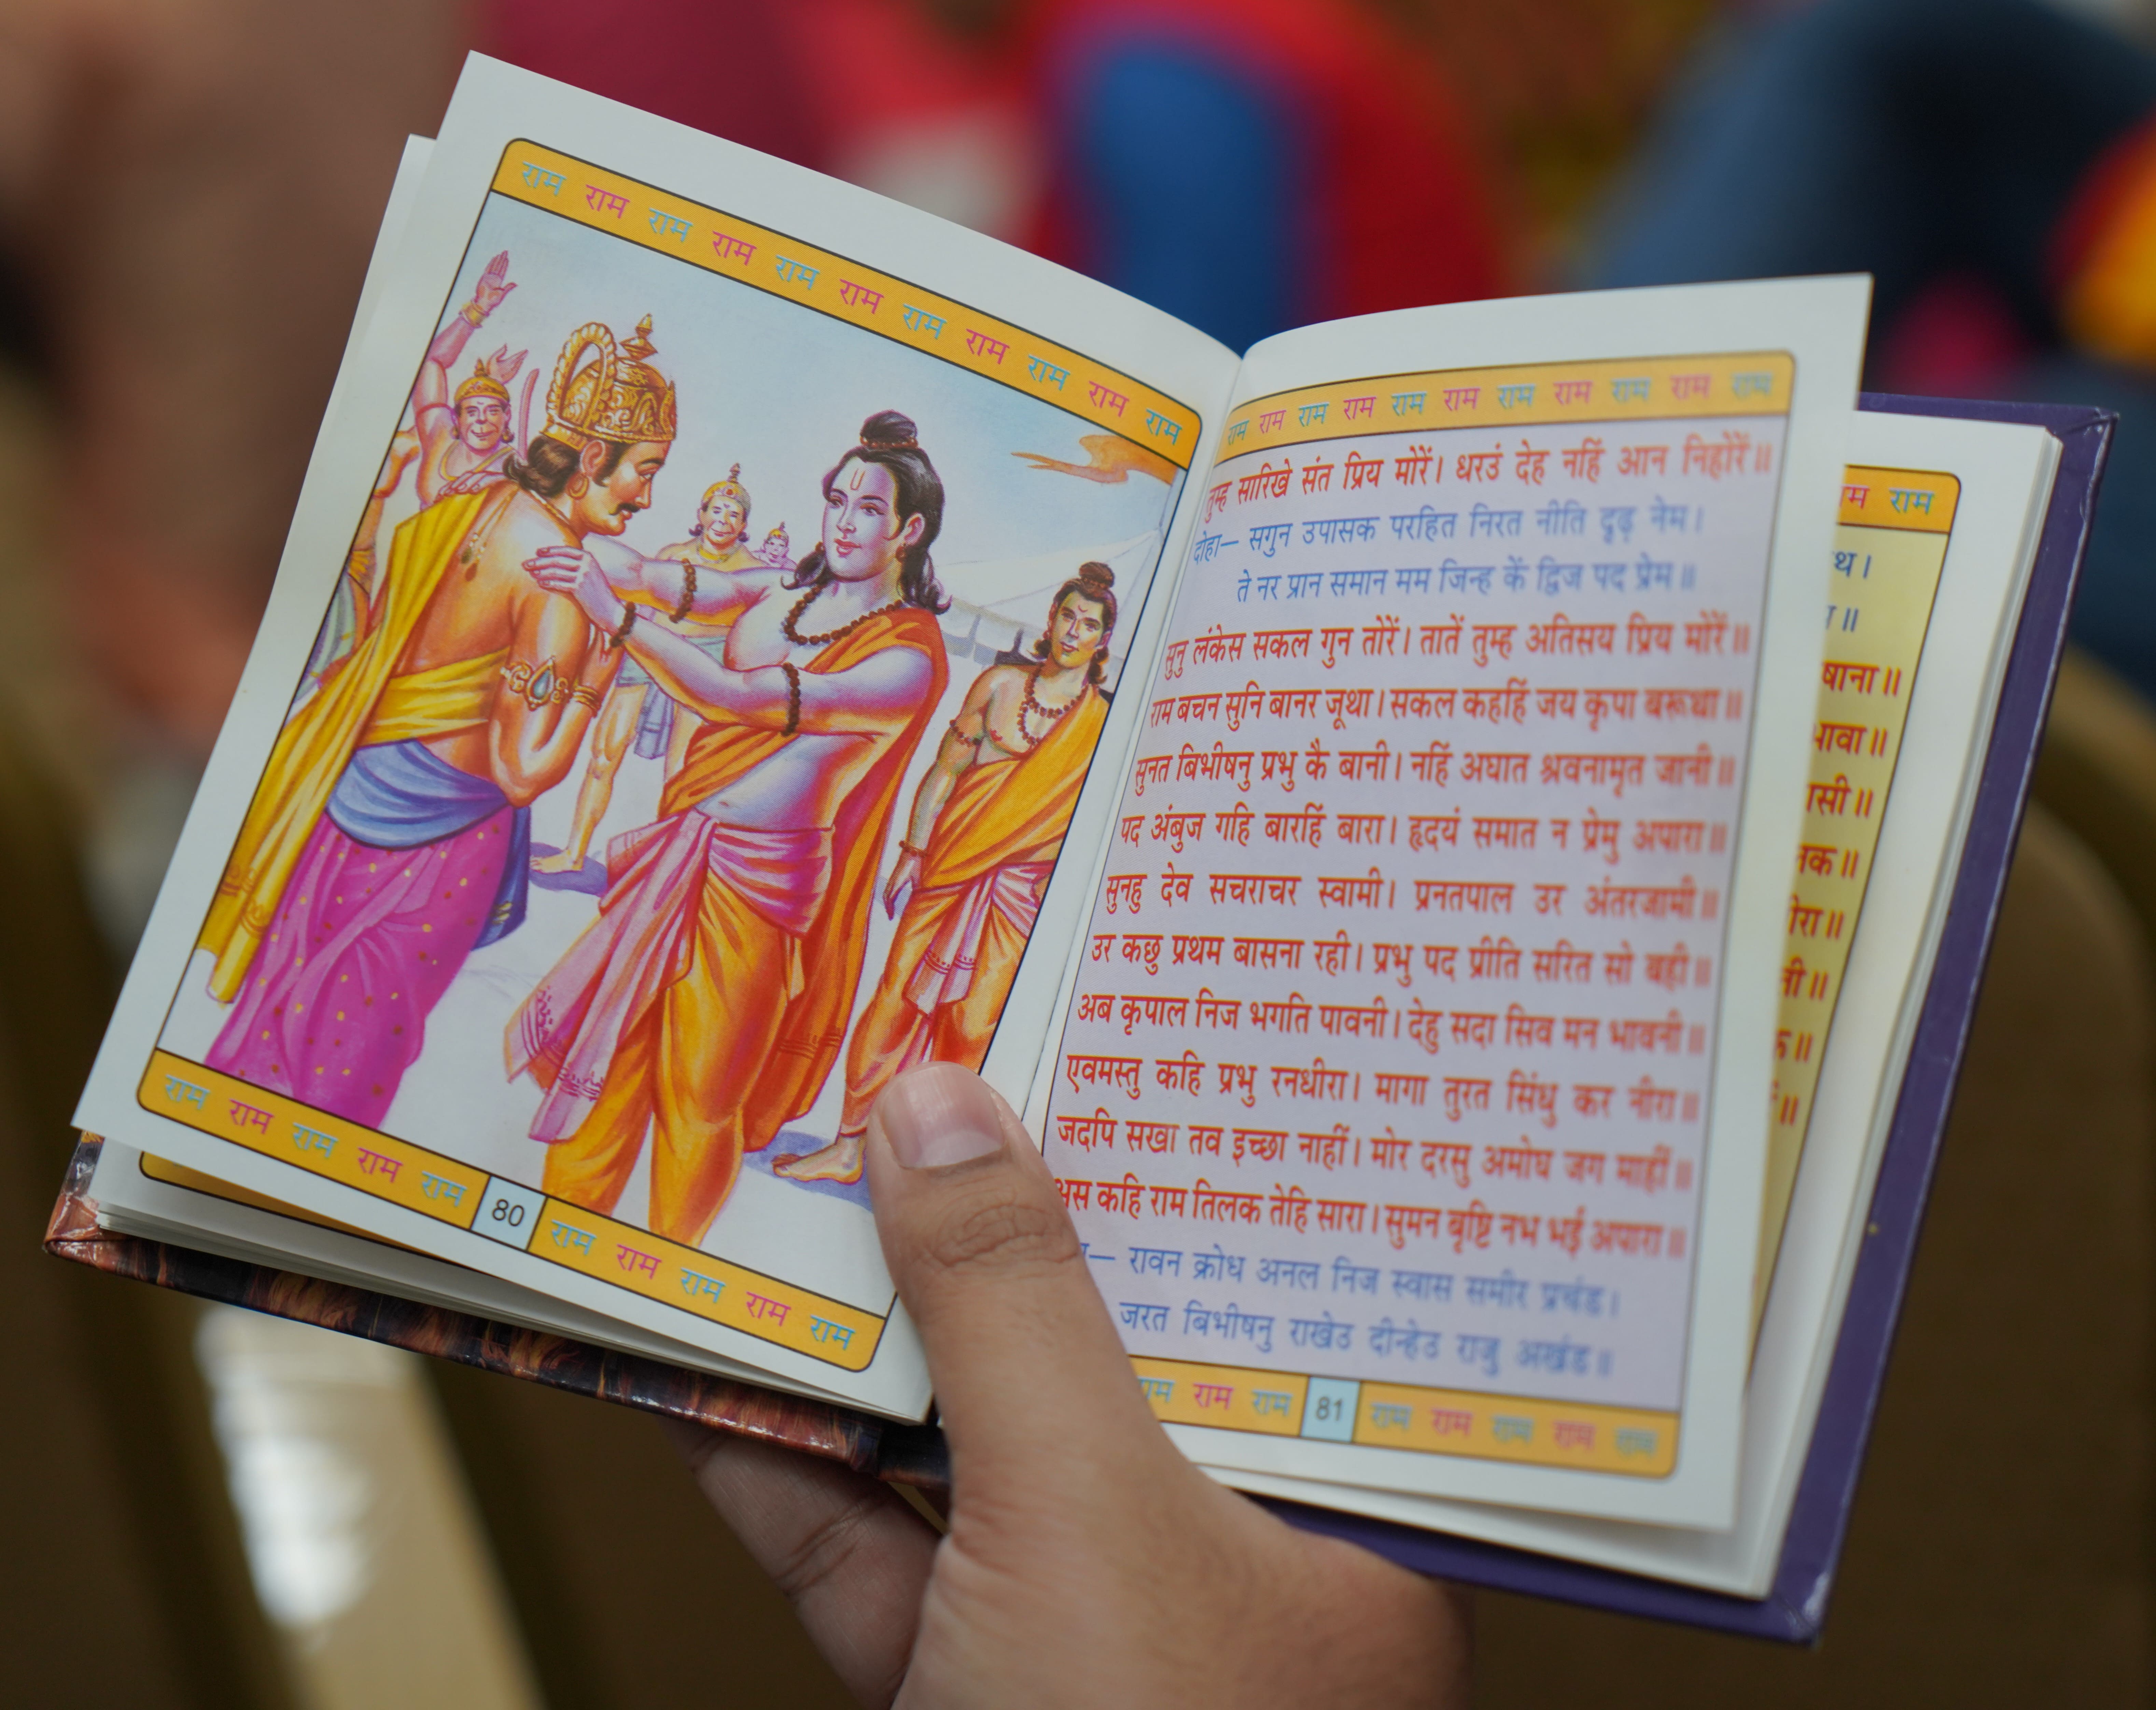 राम राम राम राम राम राम राम राम राम राम राम
राम राम राम राम राम
80
राम राम राम राम राम
राम राम राम राम राम राम राम राम राम राम राम
तुम्ह सारिखे संत प्रिय मोरें। धरउं देह नहिं आन निहोरें॥
दोहा— सगुन उपासक परहित निरत नीति दृढ़ नेम।
ते नर प्रान समान मम जिन्ह कें द्विज पद प्रेम॥
सुनु लंकेस सकल गुन तोरें। तातें तुम्ह अतिसय प्रिय मोरें॥
राम बचन सुनि बानर जूथा। सकल कहहिं जय कृपा बरूथा॥
सुनत बिभीषनु प्रभु कै बानी। नहिं अघात श्रवनामृत जानी॥
पद अंबुज गहि बारहिं बारा। हृदयं समात न प्रेमु अपारा॥
सुनहु देव सचराचर स्वामी। प्रनतपाल उर अंतरजामी॥
उर कछु प्रथम बासना रही। प्रभु पद प्रीति सरित सो बही॥
अब कृपाल निज भगति पावनी। देहु सदा सिव मन भावनी॥
एवमस्तु कहि प्रभु रनधीरा। मागा तुरत सिंधु कर नीरा॥
जदपि सखा तव इच्छा नाहीं। मोर दरसु अमोघ जग माहीं॥
अस कहि राम तिलक तेहि सारा। सुमन बृष्टि नभ भई अपारा॥
— रावन क्रोध अनल निज स्वास समीर प्रचंड।
जरत बिभीषनु राखेउ दीन्हेउ राजु अखंड॥
राम राम राम
81
राम राम राम राम राम
राम